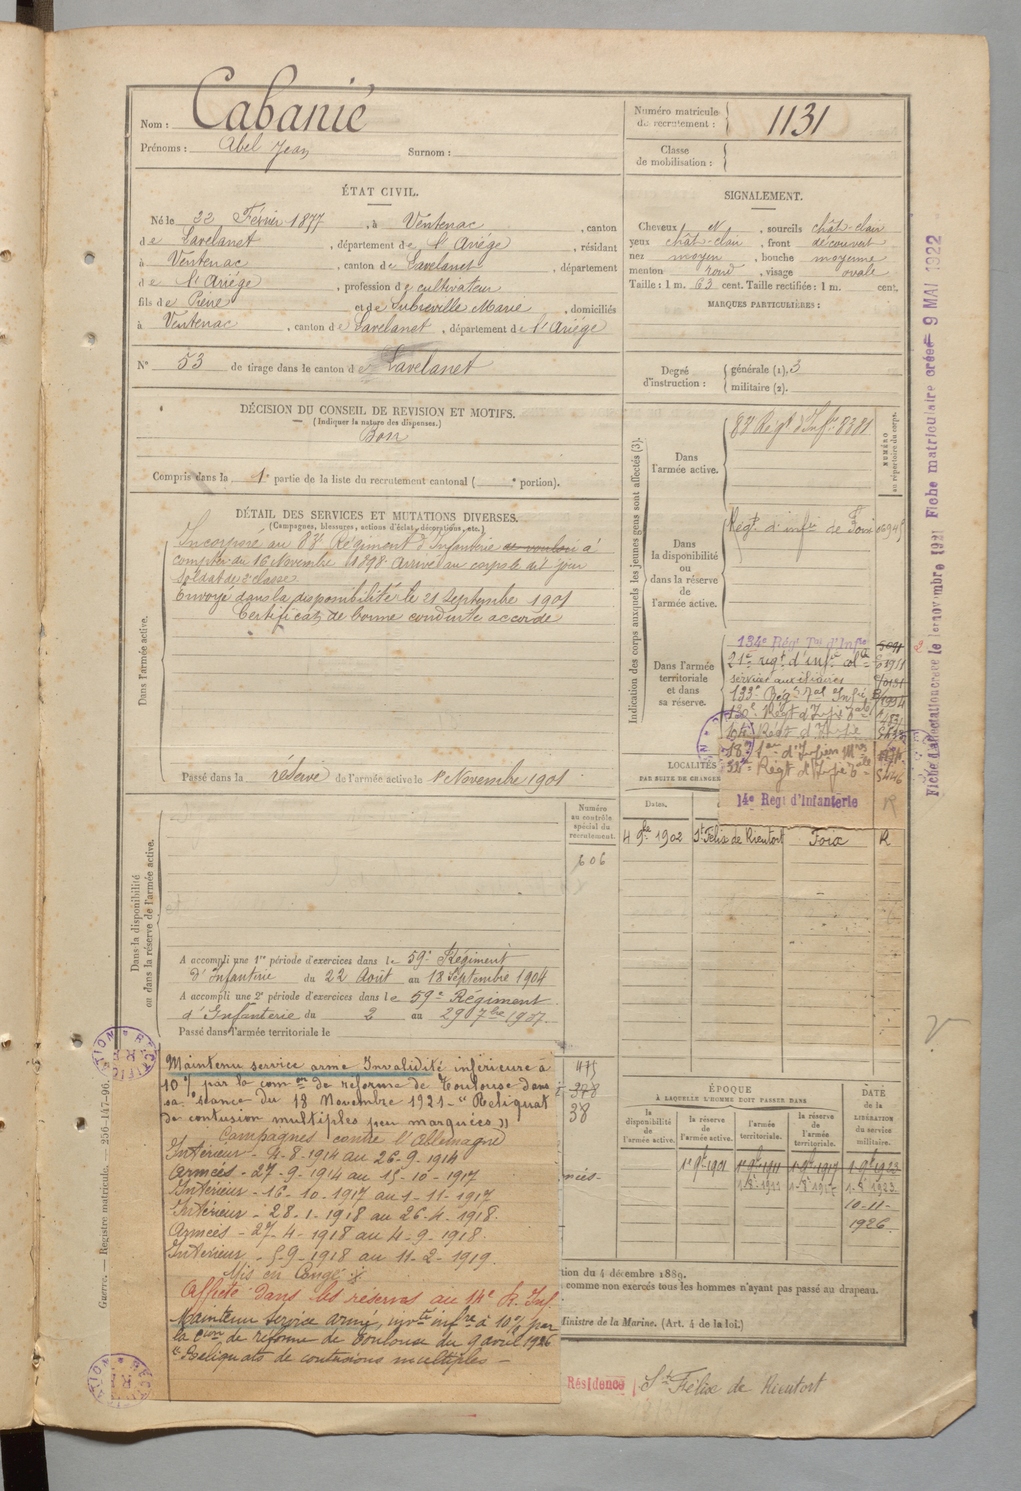 Nom : Cabanié
Prénoms : Abel Jean Surnom :
Numéro matricule du recrutement : 1131
Classe de mobilisation :
ÉTAT CIVIL.
Né le 22 Février 1877, à Ventenac, canton
de Lavelanet, département de l'Ariége, résidant
à Ventenac, canton de Lavelanet, département
de l'Ariége, profession de cultivateur
fils de Pierre et de Marie, domiciliés
à Ventenac, canton de Lavelanet, département de l'Ariége
N° 53 de tirage dans le canton de Lavelanet
SIGNALEMENT.
Cheveux N, sourcils chât-clair
yeux chât-clair, front découvert
nez moyen, bouche moyenne
menton rond, visage ovale
Taille : 1 m. 63 cent. Taille rectifiée : 1 m. cent.
MARQUES PARTICULIÈRES :
Degré d'instruction : générale (1). 3
militaire (2).
DÉCISION DU CONSEIL DE REVISION ET MOTIFS.
(Indiquer la nature des dispenses.)
Bon
Compris dans la 1e partie de la liste du recrutement cantonal ( e portion).
DÉTAIL DES SERVICES ET MUTATIONS DIVERSES.
(Campagnes, blessures, actions d'éclat, décorations, etc.)
Dans l'armée active.
Incorporé au 83e Régiment d'Infanterie à
compter du 16 Novembre 1898. Arrivé au corps le dit jour
soldat de 2e classe
Envoyé dans la disponibilité le 21 Septembre 1901
Certificat de bonne conduite accordé
Passé dans la réserve de l'armée active le 1er Novembre 1901
Indication des corps auxquels les jeunes gens sont affectés (3).
NUMÉRO au répertoire du corps.
Dans l'armée active.
83 Régt d'Infie 8381
Dans la disponibilité ou dans la réserve de l'armée active.
Régt d'infie de Foix
Dans l'armée territoriale et dans sa réserve.
134e Régt Tal d'Infie
21e régt d'infie
services auxiliaires
133e Régt Tal Infie
130e Régt d'Infie
14e Regt d'infanterie R
LOCALITÉS
PAR SUITE DE CHANGE
Dates.
4 9bre 1902 St Félix de Rieutort Foix R
Dans la disponibilité ou dans la réserve de l'armée active.
Numéro au contrôle spécial du recrutement.
606
A accompli une 1re période d'exercices dans le 59e Régiment
d'Infanterie du 22 Août au 18 Septembre 1904
A accompli une 2e période d'exercices dans le 59e Régiment
d'Infanterie du 2 au 29 9bre 1907
Passé dans l'armée territoriale le
475
378
38
Maintenu service armé Invalidité inférieure à
10% par la comon de réforme de Toulouse dans
sa séance du 18 Novembre 1921 - "Reliquat
de contusion multiples peu marquées"
Campagnes contre l'Allemagne
Intérieur - 4-8-1914 au 26-9-1914
Armées - 27-9-1914 au 15-10-1917
Intérieur - 16-10-1917 au 1-11-1917
Intérieur - 28-1-1918 au 26-4-1918.
Armées - 27-4-1918 au 4-9-1918.
Intérieur - 5-9-1918 au 11-2-1919.
Mis en Congé
Affecté dans les réserves au 14e R. Inf.
Maintenu service armé, invté infre à 10% par
la Cion de réforme de Toulouse du 9 avril 1926
"Reliquats de contusions multiples -
ÉPOQUE
À LAQUELLE L'HOMME DOIT PASSER DANS
DATE de la LIBÉRATION du service militaire.
la disponibilité de l'armée active.
la réserve de l'armée active.
l'armée territoriale.
la réserve de l'armée territoriale.
1er 9bre 1901 1er 9bre 1911 1er 9bre 1917 1-9bre 1923
10-11-1926
tion du 4 décembre 1889.
comme non exercés tous les hommes n'ayant pas passé au drapeau.
Ministre de la Marine. (Art. 4 de la loi.)
Résidence St Félix de Rieutort
Guerre. — Registre matricule. — 256-147-96.
Fiche matriculaire créée 9 MAI 1922
Fiche d'affectation créée le 1er novembre 1921